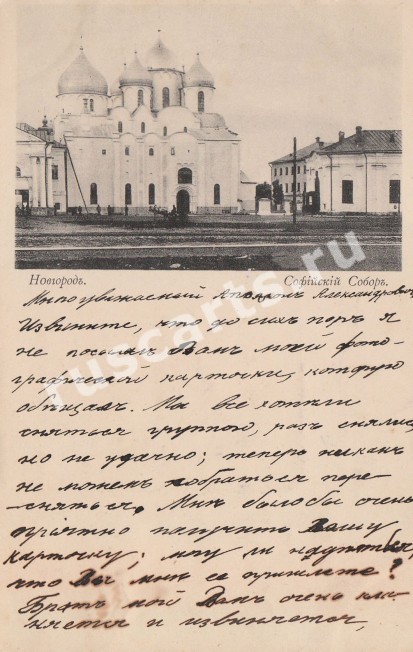 Новгородъ. Софійскій Соборъ.
Многоуважаемый Александровичъ
Извините, что до сихъ поръ я
не послалъ Вамъ моей фото-
графической карточки, которую
обѣщалъ. Мы все хотѣли
сняться группою, разъ снялись
но не удачно; теперь никакъ
не можемъ собраться пере-
сняться. Мнѣ было бы очень
пріятно получить Вашу
карточку; могу ли надѣяться,
что Вы мнѣ ее пришлете?
Братъ мой Вамъ очень кла-
няется и извиняется,
ruscarts.ru